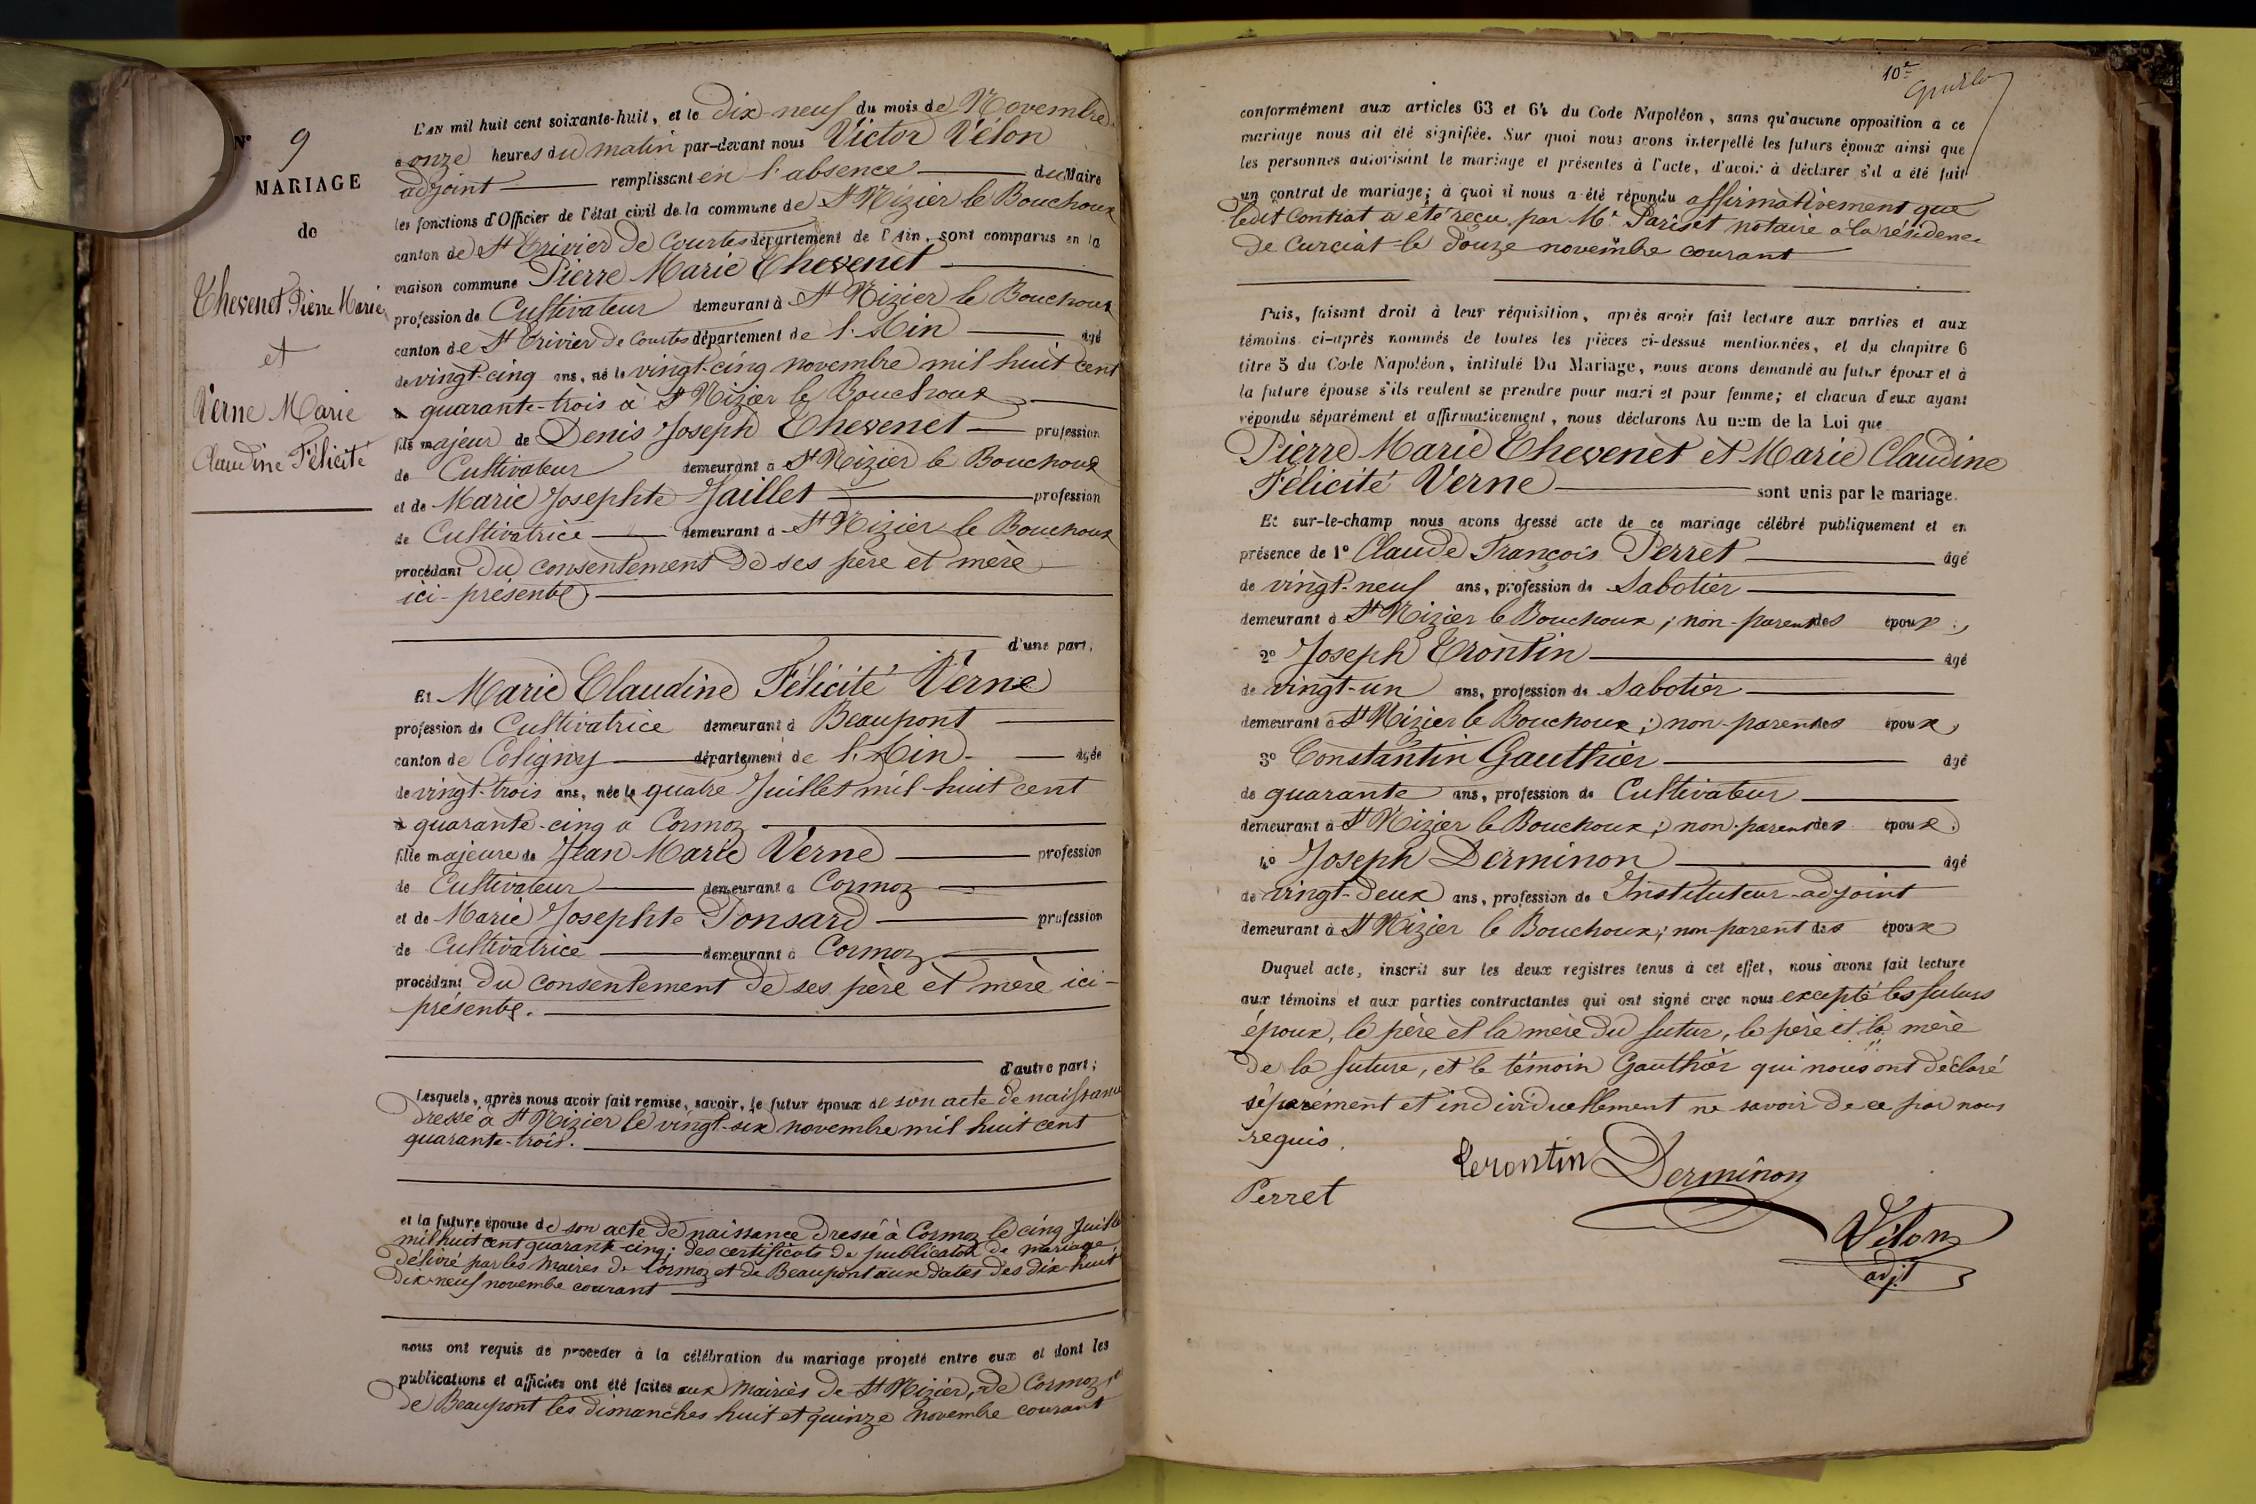 N° 9
MARIAGE
de
Thevenet Pierre Marie
et
Verne Marie
Claudine Félicité
L'AN mil huit cent soixante-huit, et le dix-neuf du mois de Novembre
à onze heures du matin par-devant nous Victor Vélon
adjoint remplissant en l'absence du Maire
les fonctions d'Officier de l'état civil de la commune de St Nizier le Bouchoux
canton de St Trivier de Courtes département de l'Ain, sont comparus en la
maison commune Pierre Marie Thevenet
profession de Cultivateur demeurant à St Nizier le Bouchoux
canton de St Trivier de Courtes département de l'Ain âgé
de vingt-cinq ans, né le vingt-cinq novembre mil huit cent
quarante-trois à St Nizier le Bouchoux
fils majeur de Denis Joseph Thevenet profession
de Cultivateur demeurant à St Nizier le Bouchoux
et de Marie Josephte Jaillet profession
de Cultivatrice demeurant à St Nizier le Bouchoux
procédant du consentement de ses père et mère
ici-présents
d'une part,
Et Marie Claudine Félicité Verne
profession de Cultivatrice demeurant à Beaupont
canton de Coligny département de l'Ain âgée
de vingt-trois ans, née le quatre Juillet mil huit cent
quarante-cinq à Cormoz
fille majeure de Jean Marie Verne profession
de Cultivateur demeurant à Cormoz
et de Marie Josephte Ponsard profession
de Cultivatrice demeurant à Cormoz
procédant du consentement de ses père et mère ici-
présents.
d'autre part;
Lesquels, après nous avoir fait remise, savoir, le futur époux de son acte de naissance
dressé à St Nizier le vingt-six novembre mil huit cent
quarante-trois.
et la future épouse de son acte de naissance dressé à Cormoz le cinq Juillet
mil huit cent quarante-cinq; des certificats de publication de mariage
délivré par les Maires de Cormoz et de Beaupont aux dates des dix-huit
dix-neuf novembre courant
nous ont requis de procéder à la célébration du mariage projeté entre eux et dont les
publications et affiches ont été faites aux Mairies de St Nizier, de Cormoz et
de Beaupont les dimanches huit et quinze novembre courant
10e
conformément aux articles 63 et 64 du Code Napoléon, sans qu'aucune opposition à ce
mariage nous ait été signifiée. Sur quoi nous avons interpellé les futurs époux ainsi que
les personnes autorisant le mariage et présentes à l'acte, d'avoir à déclarer s'il a été fait
un contrat de mariage; à quoi il nous a été répondu affirmativement que
ledit Contrat a été reçu par Me Pariset notaire à la résidence
de Curciat le douze novembre courant
Puis, faisant droit à leur réquisition, après avoir fait lecture aux parties et aux
témoins ci-après nommés de toutes les pièces ci-dessus mentionnées, et du chapitre 6
titre 5 du Code Napoléon, intitulé Du Mariage, nous avons demandé au futur époux et à
la future épouse s'ils veulent se prendre pour mari et pour femme; et chacun d'eux ayant
répondu séparément et affirmativement, nous déclarons Au nom de la Loi que
Pierre Marie Thevenet et Marie Claudine
Félicité Verne sont unis par le mariage.
Et sur-le-champ nous avons dressé acte de ce mariage célébré publiquement et en
présence de 1° Claude François Perret âgé
de vingt-neuf ans, profession de Sabotier
demeurant à St Nizier le Bouchoux; non-parent des époux;
2° Joseph Trontin âgé
de vingt-un ans, profession de Sabotier
demeurant à St Nizier le Bouchoux; non-parent des époux,
3° Constantin Gauthier âgé
de quarante ans, profession de Cultivateur
demeurant à St Nizier le Bouchoux; non-parent des époux.
4° Joseph Derminon âgé
de vingt-deux ans, profession de Instituteur-adjoint
demeurant à St Nizier le Bouchoux; non-parent des époux
Duquel acte, inscrit sur les deux registres tenus à cet effet, nous avons fait lecture
aux témoins et aux parties contractantes qui ont signé avec nous excepté les futurs
époux, le père et la mère du futur, le père et la mère
de la future, et le témoin Gauthier qui nous ont déclaré
séparément et individuellement ne savoir de ce par nous
requis.
Terontin Derminon
Perret
Vélon
adjt